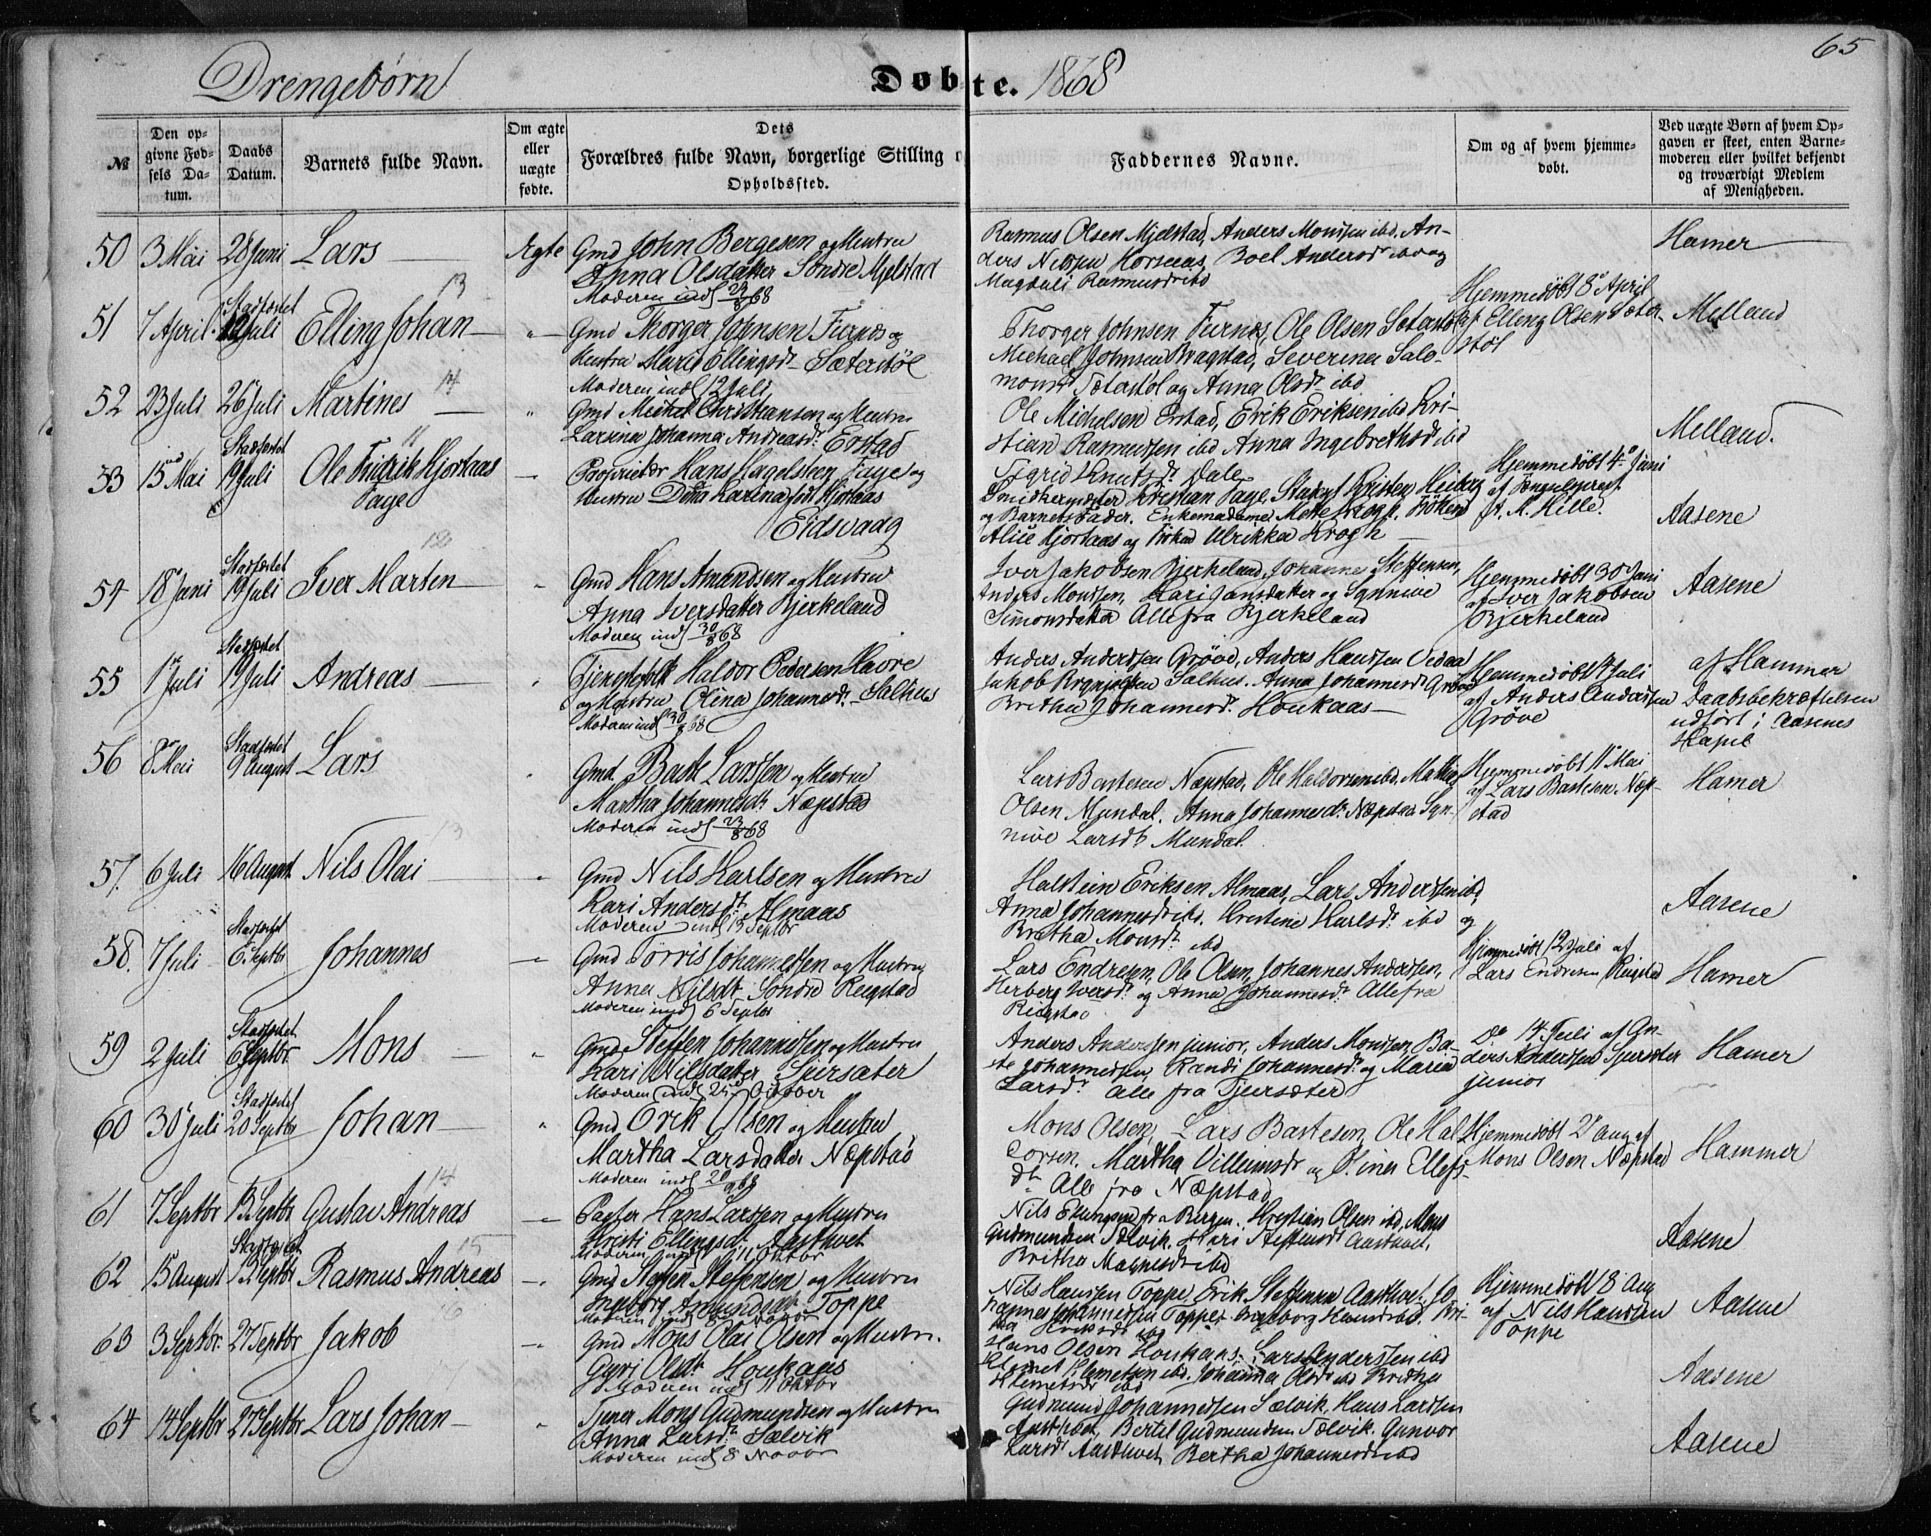 65
Drengebørn Døbte. 1868
№
Den opgivne Fødsels Datum.
Daabs Datum.
Barnets fulde Navn.
Om ægte eller uægte fødte.
Dets Forældres fulde Navn, borgerlige Stilling o
Opholdssted.
Faddernes Navne.
Om og af hvem hjemmedøbt.
Ved uægte Børn af hvem Opgaven er skeet, enten Barnemoderen eller hvilket bekjendt og troværdigt Medlem af Menigheden.
50 3 Mai 28 Juni Lars Ægte Gmd John Bergesen og Hustru
Anna Olsdatter Søndre Mjelstad
Moderen indl 23/8 68
Rasmus Olsen Mjelstad, Anders Monssen ibd. An-
ders Nilssen Horseaas, Boel Andersdr ibd og
Magdali Rasmusdr ibd
Hamer
51 7 April Stadfæstet 12 Juli Elling Johan 13 Gmd Thorger Johnsen Furnæs og
Hustru Marit Ellingsdr Sæterstøl
Moderen indl 12 Juli
Thorger Johnsen Furnæs, Ole Olsen Sæterstøl
Michael Johnsen Bragstad, Severina Salo-
monsdr Sæterstøl og Anna Olsdr ibd
Hjemmedøbt 8 April
af Elling Olsen Sæter-
støl
Melland
52 23 Juli 26 Juli Martines 14 Gmd Michel Christiansen og Hustru
Larsina Johanna Andreasdr. Erstad
Ole Michelsen Erstad, Erik Eriksen ibd Kri-
stian Rasmussen ibd Anna Ingebrethsdr ibd
Sigrid Knutsdr. Dale
Melland.
53 15 Mai Stadfæstet 19 Juli Ole Fredrik Hjortaas
Fage 11 Proprietær Hans Hagelsteen Fage og
Hustru Dina Karina født Hjortaas
Eidsvaag
Snedkermester Kristian Fage, Student Kristen Heiberg
og Barnets Fader. Enkemadame Mette Krogh, Frøken
Alice Hjortaas og Frøken Ulrikka Krogh
Hjemmedøbt 4 Juni
af
J. M. Hille.
Aasene
54 18 Juni Stadfæstet 19 Juli Iver Marten 12 Gmd Hans Amundsen og Hustru
Anna Iversdatter Bjerkeland
Moderen indl 30/8 68
Iver Jakobsen Bjerkeland, Johannes Steffensen,
Anders Monssen, Kari Jansdatter og Synnive
Simonsdatter Alle fra Bjerkeland
Hjemmedøbt 30 Juni
af Iver Jakobsen
Bjerkeland
Aasene
55 1 Juli Stadfæstet 19 Juli Andreas Tjenestefolk Haldor Pedersen Havre
og Hustru Olina Johannesdr. Salhus
Moderen indl 30/8 68
Anders Anderssen Grøve, Anders Hanssen Vedaa
Jakob Brynjulfsen Salhus. Anna Johannesdr Grøve
Brithe Johannesdr. Houkaas
Hjemmedøbt 4 Juli
af Anders Anderssen
Grøve
af Hammer
Daabsbekræftelsen
udført i Aasenes
Kapel
56 8 Mai Stadfæstet 9 August Lars Gmd. Baste Larssen og Hustru
Martha Johannesdr. Næpstad
Moderen indl 23/8 68
Lars Bastesen Næpstad, Ole Haldorsen ibd. Mathias
Olsen Mundal. Anna Johannesdr. Næpstad Syn-
nive Larsdr Mundal.
Hjemmedøbt 11 Mai
af Lars Bastesen Næp-
stad
Hamer
57. 6 Juli 16 August. Nils Olai 13 Gmd Nils Karlsen og Hustru
Kari Andersdr. Almaas
Moderen indl 13 Septbr
Halstein Eriksen Almaas, Lars Anderssen ibd,
Anna Johannesdr ibd. Kristine Karlsdr ibd og
Brithe Monsdr. ibd
Aasene
58. 7 Juli Stadfæstet 6 Septbr Johannes Gmd Torris Johannessen og Hustru
Anna Nilsdr. Søndre Reigstad
Moderen indl 6 Septbr
Lars Endresen, Ole Olsen, Johannes Anderssen,
Herberg Iversdr. og Anna Johannesdr. Alle fra
Reigstad
Hjemmedøbt 12 Juli af
Lars Endresen Reigstad
Hamer
59 2 Juli Stadfæstet 6 Septbr. Mons Gmd. Steffen Johannessen og Hustru
Kari Nilsdatter Spirsæter
Moderen indl 25 October
Anders Anderssen junior, Anders Monssen, Ba-
ste Johannessen, Randi Johannesdr. og Maria
Larsdr. Alle fra Tjursæter
Do 14 Juli af An-
ders Anderssen
junior
Hamer
60 30 Juli Stadfæstet 20 Septbr Johan Gmd Erik Olsen og Hustru
Martha Larsdatter Næpstad
Moderen indl 20/9 68
Mons Olsen, Lars Bastesen, Ole Hal-
dorsen. Martha Villumsdr og Oline Ellefs-
dr. Alle fra Næpstad
Hjemmedøbt 2 Aug af
Mons Olsen Næpstad
Hammer
61 7 Septbr 13 Septbr Gustav Andreas 14 Pagter Hans Larssen og Hustru
Kristi Ellingsdr. Aastvet
Moderen indl 11 Oktbr
Nils Ellingsen fra Bergen. Kristian Olsen ibd. Mons
Gudmundsen Sælvik. Kari Steffensdr Aastvet,
Britha Magnesdr ibd
Aasene
62 15 August Stadfæstet 13 Septbr Rasmus Andreas 15 Gmd Steffen Steffensen og Hustru
Ingborg Amundsdr. Toppe
Moderen indl 8 Novbr
Nils Hanssen Toppe, Erik Steffensen Aastvet, Jo-
hannes Johannessen Toppe. Ingeborg Hansdr ibd. Bri-
tha Eriksdr ibd
Hjemmedøbt 18 Aug
af Nils Hanssen
Toppe
Aasene
63 3 Septbr. 27 Septbr Jakob 16 Gmd Mons Olai Olsen og Hustru.
Gyri Olsdr. Houkaas
Moderen indl 11 Oktbr
Hans Olsen Houkaas, Lars Anderssen ibd
Klemet Klemetsen ibd. Johanna Olsdr ibd Britha
Klemetsdr ibd
Aasene
64 14 Septbr 27 Septbr Lars Johan Tjener Mons Gudmundsen og Hustru
Anna Larsdr. Sælvik
Moderen indl 8 Novbr
Gudmund Johannessen Sælvik, Hans Larssen
Aastvedt, Bertel Gudmundsen Sælvik. Gunvor
Larsdr Aasthvet, Bertha Johannesdr ibd
Aasene